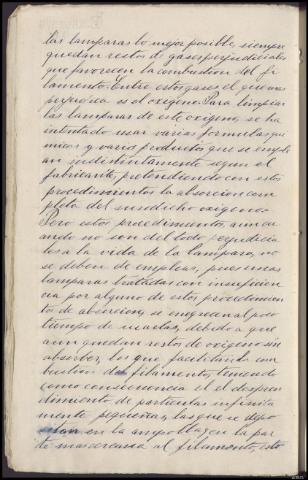 las lamparas lo mejor posible, siempre
quedan restos de gases perjudiciales
que favorecen la combustion del fi
lamento. Entre estos gases el que mas
perjudica es el oxigeno. Para limpiar
las lamparas de este oxigeno, se ha
intentado usar varias formulas qui
micas y varios productos que se emple
an indistintamente segun el
fabricante, pretendiendo con estos
procedimientos la absorcion com
pleta del susodicho oxigeno.
Pero estos procedimientos, aun cu
ando no son del todo perjudicia
les a la vida de la lampara, no
se deben de emplear, pues unas
lamparas tratadas con insuficien
cia por alguno de estos procedimien
tos de absorcion, se ennegrecen al poco
tiempo de usarlas, debido a que
aun quedan restos de oxigeno sin
absorber, los que facilitando la com
bustion del filamento, teniendo
como consecuencia el el despren
dimiento de particulas infinita
mente pequeñas, las que se depo
sitan en la ampolla, en la par
te mas cercana al filamento, esto